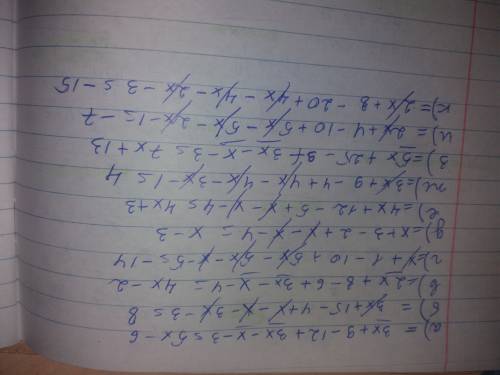 а) = 3x + 9 - 12 + 3x - x - 3 = 5x - 6
б) = 3x + 15 - 4 + x - x - 3x - 3 = 8
в) = 2x + 8 - 6 + 3x - x - 4 = 4x - 2
г) = x + 1 - 10 + 5x - 5x - x - 5 = - 14
д) = x + 3 - 2 + x - x - 4 = x - 3
е) = 4x + 12 - 5 + x - x - 4 = 4x + 3
ж) = 3x + 9 - 4 + 4x - 4x - 3x - 1 = 4
з) = 5x + 25 - 9 + 3x - x - 3 = 7x + 13
и) = 2x + 4 - 10 + 5x - 5x - 2x - 1 = - 7
к) = 2x + 8 - 20 + 4x - 4x - 2x - 3 = - 15